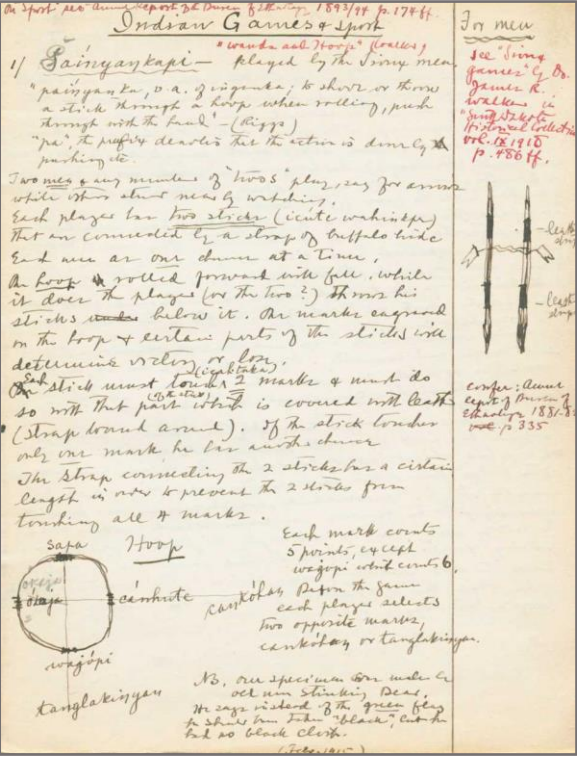 On Sport see Annual Report of the Bureau of Ethnology 1893/94 p. 174 ff.
Indian Games & Sport
"wands and Hoop" (walker)
1/ Painyankapi – played by the Sioux men
"painyanka, v.a. of inyanka; to shoot or throw
a stick through a hoop when rolling, push
through with the hand" – (Riggs)
"pa", the prefix denotes that the action is done by
pushing etc.
Two men & any number of "twos" play, say for arrows
while others stand nearby watching.
Each player has two sticks
that are connected by a strap of buffalo hide
Each uses one chance at a time.
The hoop rolled forward will fall. while
it does the player (or the two?) throws his
sticks below it. The marks engraved
on the hoop & certain parts of the sticks will
determine victory or loss.
Each stick must touch (icabtaka) 2 marks & must do
so with that part (of the stick) which is covered with leather
(strap bound around). If the stick touches
only one mark, he has another chance
The strap connecting the 2 sticks has a certain
length in order to prevent the 2 sticks from
touching all 4 marks.
Hoop
sapa
okaja
cánhute
wagópi
cankóhan
tanglakinyan
Each mark counts
5 points, except
wagopi which counts 6.
Before the game
each player selects
two opposite marks,
cankóhan or tanglakinyan.
NB. our specimen was made by
old man Stinking Bear.
He says instead of the green flag
he should have taken "black", but he
had no black cloth.
(Febr. 1915)
For men
see "Sioux
games" by Dr.
James R.
walker in
"South Dakota
Historical Collections
vol. IX 1918
p. 486 ff.
leather
strap
leather
strap
confer: Annual
report of Bureau of
Ethnology 1881-82
p. 335